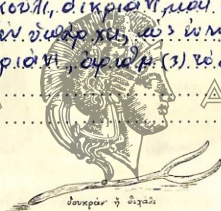 κούλι, δικριάνι, μαν.
ὑπάρχει,
ριάνι, ἀριθμ. (3) το.
δουκράν' ἢ διχάλι